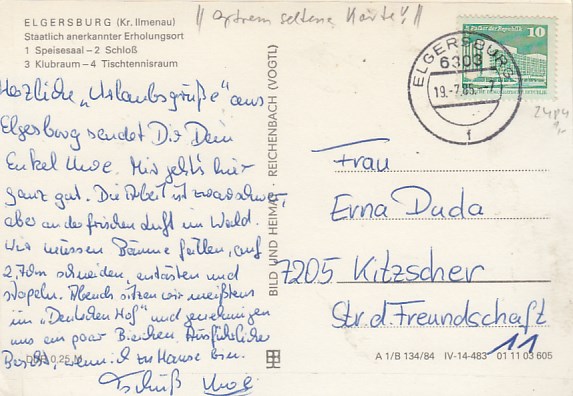 !! extrem seltene Karte!!
ELGERSBURG (Kr. Ilmenau)
Staatlich anerkannter Erholungsort
1 Speisesaal – 2 Schloß
3 Klubraum – 4 Tischtennisraum
Herzliche „Urlaubsgrüße" aus
Elgersburg sendet Dir Dein
Enkel Uwe. Mir geht's hier
ganz gut. Die Arbeit ist zwar schwer,
aber an der frischen Luft im Wald.
Wir müssen Bäume fällen, auf
2,70m schneiden, entasten und
stapeln. Abends sitzen wir meistens
im „Deutschen Hof" und genehmigen
uns ein paar Bierchen. Ausführlicher
Bericht, wenn ich zu Hause bin.
DDR 0,25 M
Tschüß Uwe
BILD UND HEIMAT · REICHENBACH (VOGTL)
Palast der Republik
10
ELGERSBURG
6303
19.-7.85.-7
1
Frau
Erna Duda
7205 Kitzscher
Str. d. Freundschaft
11
A 1/B 134/84 IV-14-483 01 11 03 605